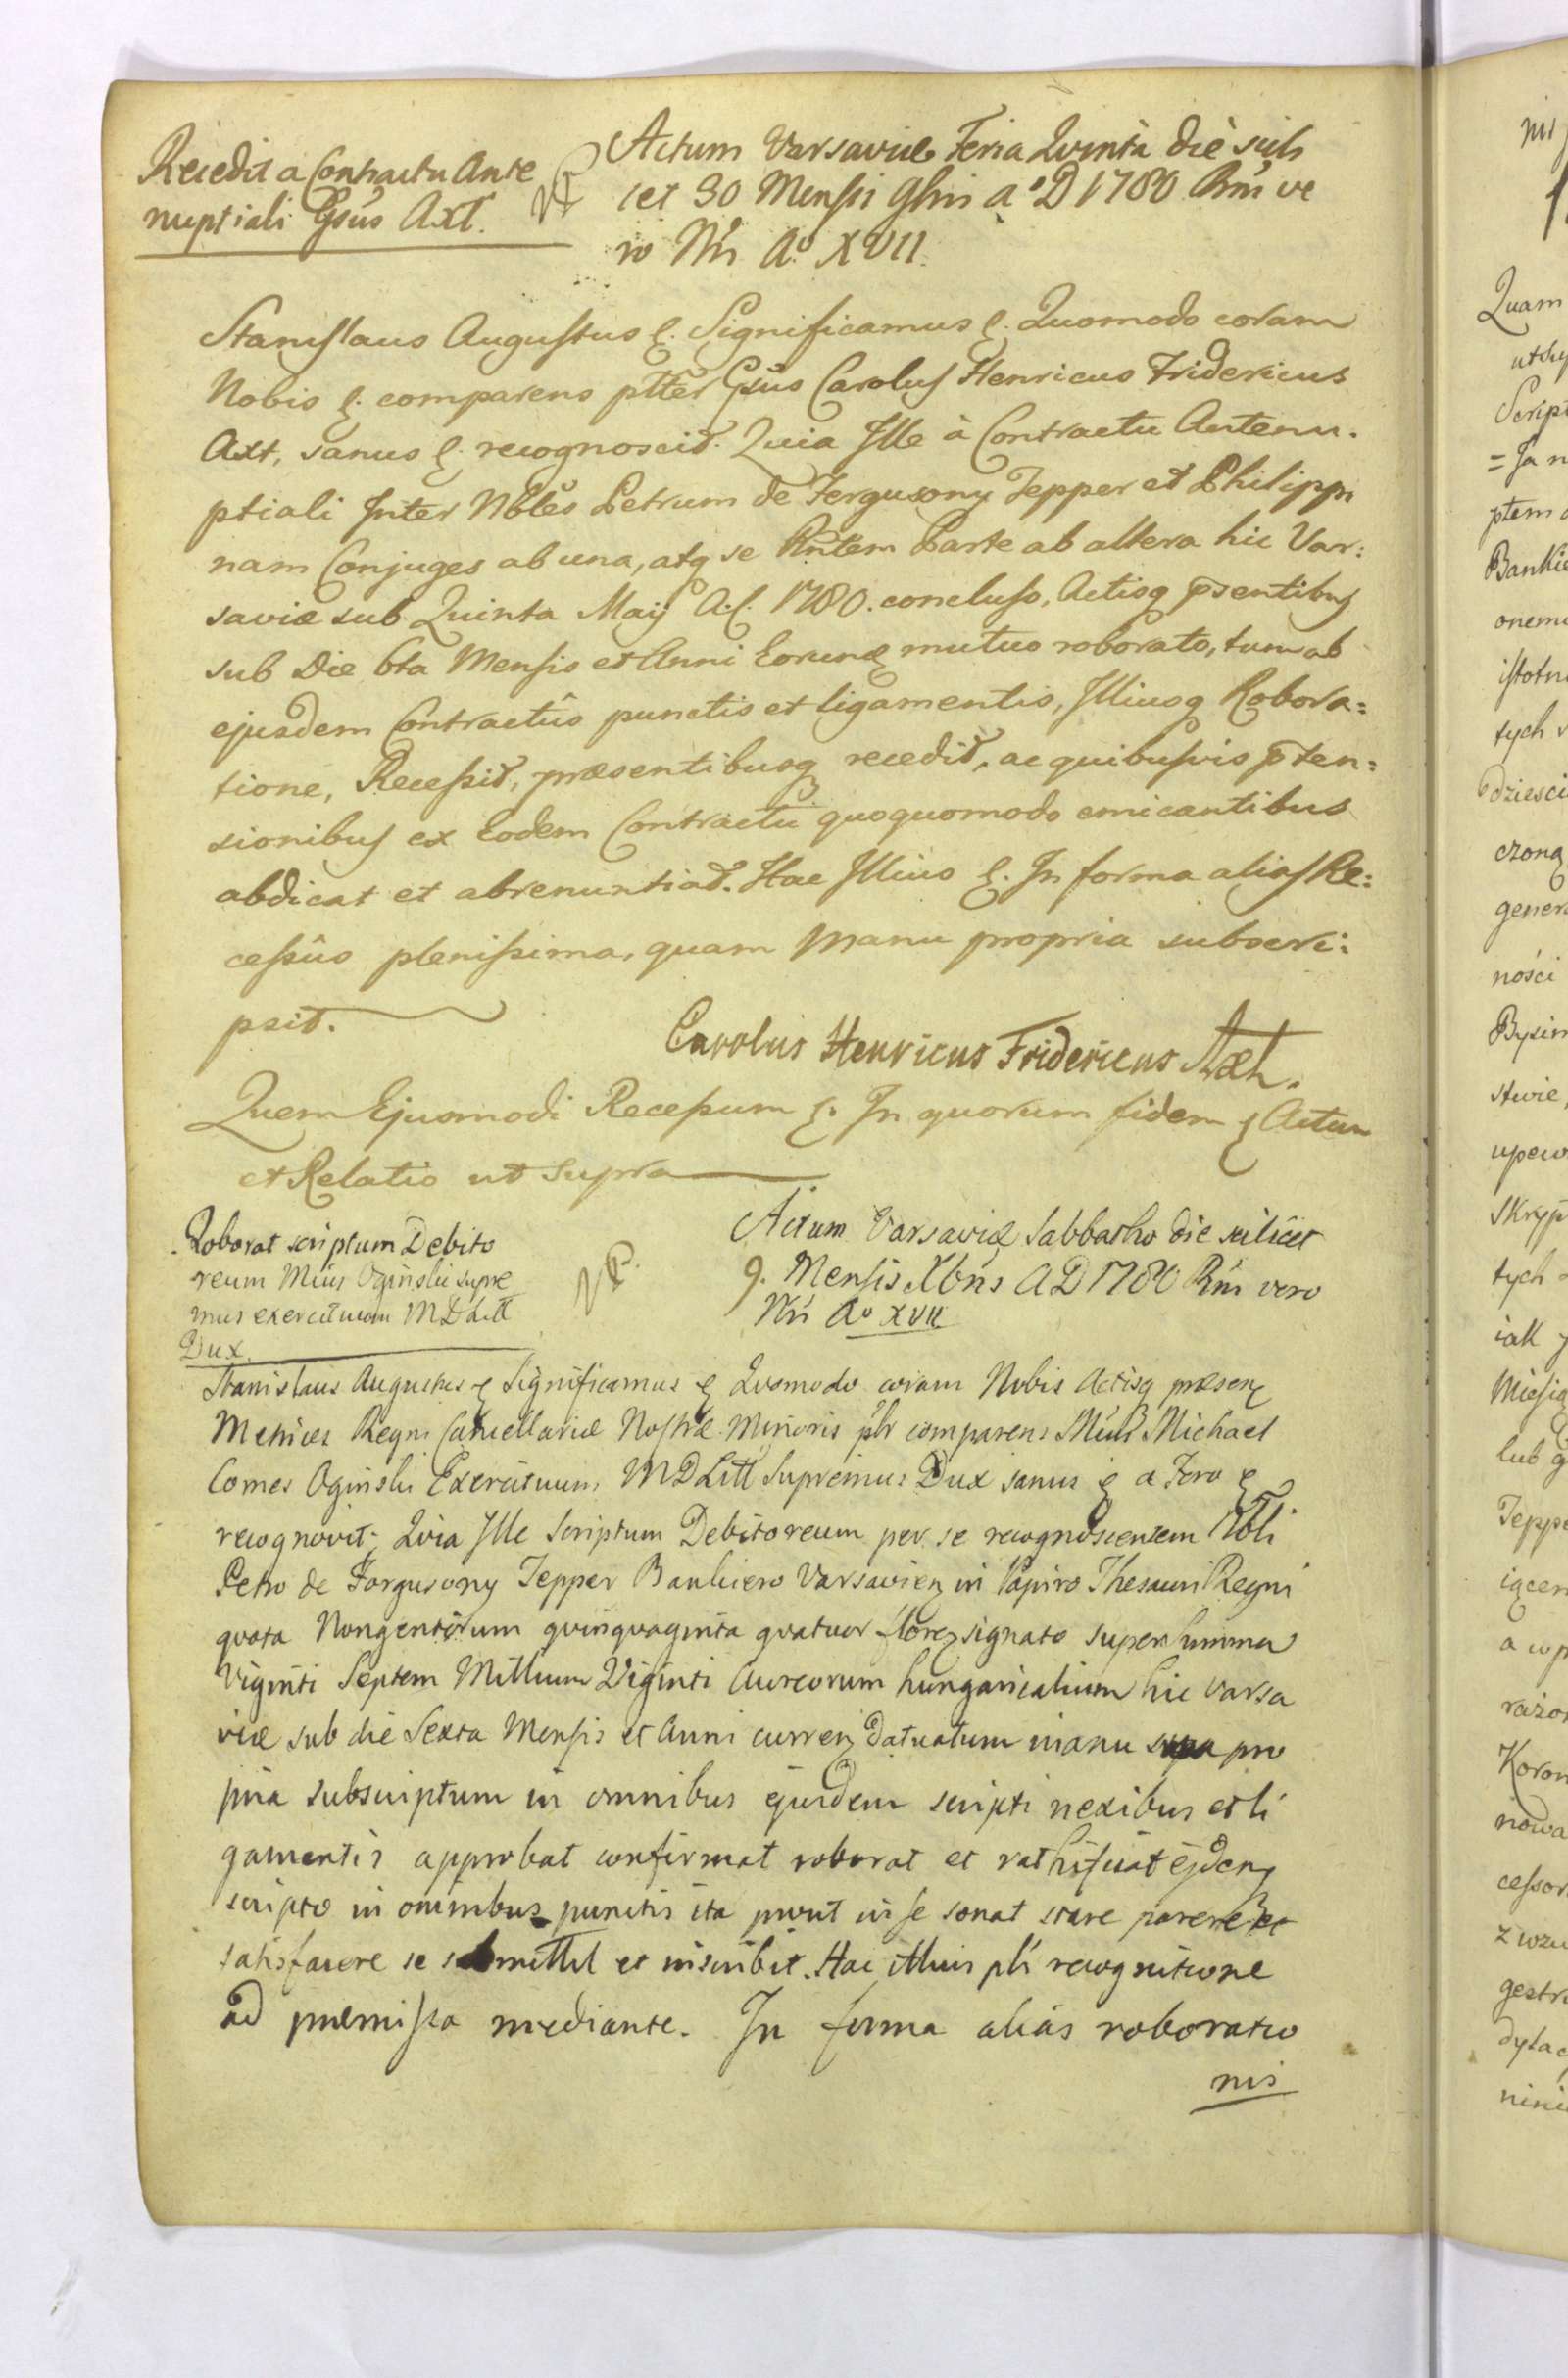 Recedit a Contractu Ante
nuptiali Gsus Axt.
Actum Varsaviæ Feria Qvinta die scili
cet 30 Mensis 9bris aº D 1780 Rni ve
ro Nri Aº XVII.
Stanislaus Augustus &. Significamus &. Quomodo coram
Nobis &. comparens pltter Gsus Carolus Henricus Fridericus
Axt, sanus &. recognoscit. Quia Ille à Contractu Antenu.
ptiali Inter Nbles Petrum de Fergusony Tepper et Philippi
nam Conjuges ab una, atq se Rntem Parte ab altera hic Var:
saviæ sub Quinta Maij A.C. 1780. concluso, Actisq psentibus
sub Die 6ta Mensis et Anni Eorund mutuo roborato, tum ab
ejusdem Contractûs punctis et ligamentis, Illiusq Robora=
tione, Recessit, præsentibusq recedit, ac quibusvis pten=
sionibus ex Eodem Contractu quoquomodo emicantibus
abdicat et abrenuntiat. Hac Illius &. In forma alias Re:
cessûs plenissima, quam Manu propria subscri:
psit.
Carolus Henricus Fridericus Axt.
Quem Ejusmodi Recessum &. In quorum fidem & Actum
et Relatio ut supra
Roborat scriptum Debito
reum Mius Oginski supre
mus exercituum MDLitt
Dux.
Actum Varsaviæ Sabbatho die scilicet
9. Mensis Xbris AD 1780 Rni vero
Nri Aº XVII
Stanislaus Augustus & Significamus & Qvomodo coram Nobis Actisq præsen
Metrices Regni Cancellariæ Nostræ Minoris plr comparens Mius Michael
Comes Oginski Exercituum MDLitt Supremus Dux sanus & a Foro &
recognovit. Qvia Ille Scriptum Debitoreum per se recognoscentem Nbli
Petro de Fergusony Tepper Bankiero Varsavien in Papiro Thesauri Regni
qvota Nongentorum qvinqvaginta qvatuor floren signato super summa
Viginti Septem Millium Viginti Aureorum hungaricalium hic Varsa
viæ sub die Sexta Mensis et Anni curren datuatum manu sua pro
pria subscriptum in omnibus ejusdem scripti nexibus et li
gamentis approbat confirmat roborat et rathificat ejdem
scripto in omnibus punctis ita prout in se sonat stare parere et
satisfacere se submittit et inscribit. Hac illius pli recognitione
ad præmissa mediante. In forma alias roboratio
nis